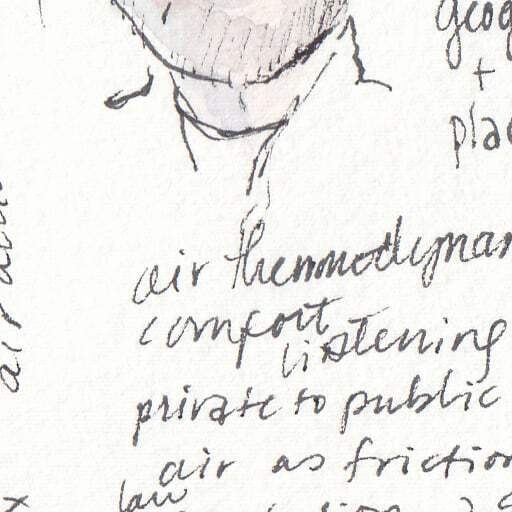 geog
+
plac
air thermodynam
comfort
listening
private to public
air as friction
law